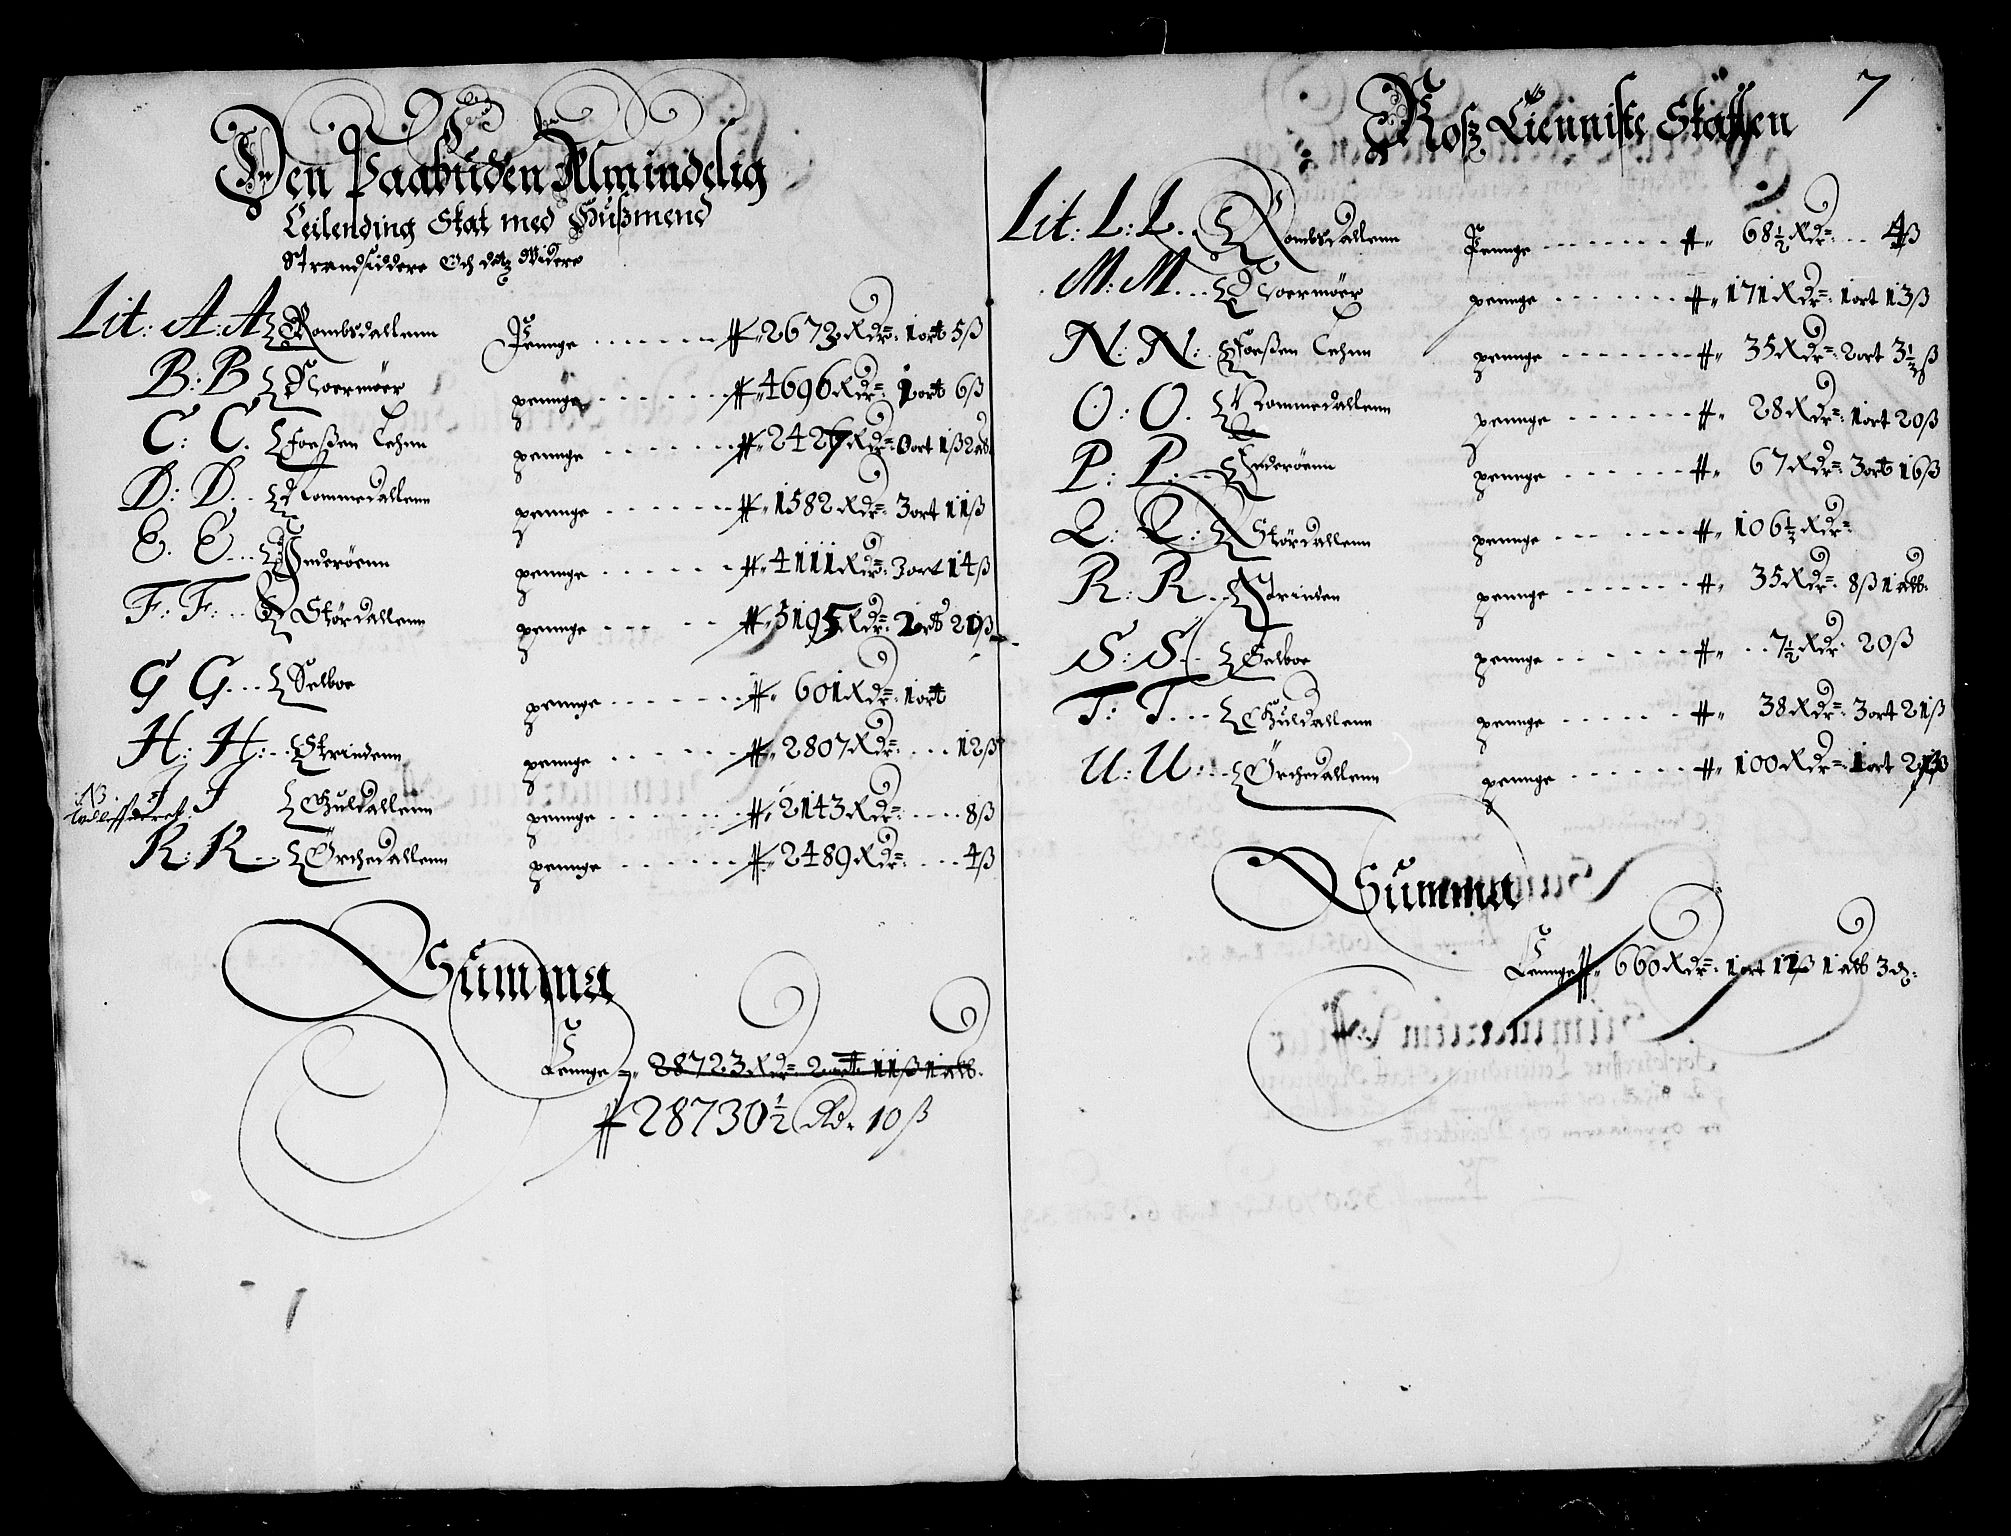 Den Paabuden Almindelig
Leilending Skat med Hußmend
Strandsiddere Och detz Videre
Lit: A: A Rombsdallenn Pennge ‑ ‑ ‑ 2672 Rdr: 1 ort 5 ß
B: B Noermøer pennge ‑ ‑ ‑ 4696 Rdr: 1 ort 6 ß
C: C. Foeßen Lehnn pennge ‑ ‑ ‑ 2427 Rdr: 0 ort 1 ß 2 alb.
D: D: Nommedallenn pennge ‑ ‑ ‑ 1582 Rdr: 3 ort 11 ß
E. E... Inderøenn pennge ‑ ‑ ‑ 4111 Rdr: 3 ort 14 ß
F: F: Størdallenn pennge ‑ ‑ ‑ 5195 Rdr: 2 ort 21 ß
G G... Selboe pennge ‑ ‑ ‑ 601 Rdr: 1 ort
H: H: Strindenn pennge ‑ ‑ ‑ 2807 Rdr: 12 ß
NB
I I Guldallenn pennge ‑ ‑ ‑ 2143 Rdr: 8 ß
K: K... Örchedallenn pennge ‑ ‑ ‑ 2489 Rdr: 4 ß
Summa
Pennge 28723 Rdr: 2 ort 11 ß 1 alb.
28730½ Rdr 10 ß
7
Rosz Tienniste Skatten
Lit: L: L.. Rombsdallenn Pennge ‑ ‑ ‑ 68½ Rdr: 4 ß
M: M... Noermøer pennge ‑ ‑ ‑ 171 Rdr: 1 ort 13 ß
N: N: Foeßen Lehnn pennge ‑ ‑ ‑ 35 Rdr: 2 ort 3½ ß
O: O. Nommedallenn pennge ‑ ‑ ‑ 28 Rdr: 1 ort 20 ß
P: P: Inderøenn pennge ‑ ‑ ‑ 67 Rdr: 3 ort 16 ß
Q: Q: Størdallenn pennge ‑ ‑ ‑ 106½ Rdr:
R: R.. Strinden pennge ‑ ‑ ‑ 35 Rdr: 8 ß 1 alb:
S: S: Selboe pennge ‑ ‑ ‑ 7½ Rdr 20 ß
T: T... Guldallenn pennge ‑ ‑ ‑ 38 Rdr: 3 ort 21 ß
U: U: Örchedallenn pennge ‑ ‑ ‑ 100 Rdr: 1 ort 21 ß
Summa
Pennge 660 Rdr: 1 ort 11 ß 1 alb 3 d: